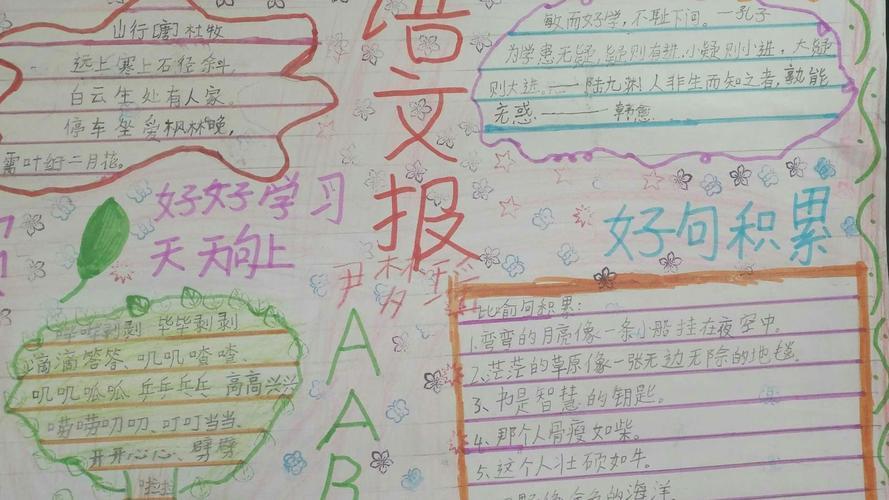 山行 唐 杜牧
远上寒上石径斜,
白云生处有人家。
停车坐爱枫林晚,
霜叶红于二月花。
语文报
敏而好学,不耻下问。一孔子
为学患无疑,疑则有进.小疑则小进,大疑
则大进。——陆九渊人非生而知之者,孰能
无惑———韩愈
好好学习
天天向上
好句积累
哔哔剥剥 毕毕剥剥
滴滴答答、叽叽喳喳、
叽叽呱呱 乒乒乓乓 高高兴兴
唠唠叨叨、叮叮当当、
开开心心、劈劈
AAB
比俞句积累:
1.弯弯的月亮像一条小船挂在夜空中。
2.茫茫的草原像一张无边无际的地毯。
3、书是智慧的钥匙。
4、那个人骨瘦如柴。
5、这个人壮硕如牛。